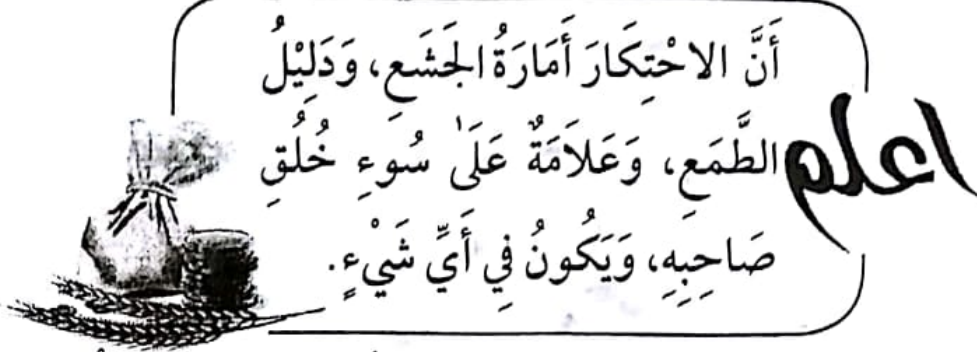 اعلم
أَنَّ الاحْتِكَارَ أَمَارَةُ الجَشَعِ، وَدَلِيْلُ
الطَّمَعِ، وَعَلَامَةٌ عَلَىٰ سُوءِ خُلُقِ
صَاحِبِهِ، وَيَكُونُ فِي أَيِّ شَيْءٍ.